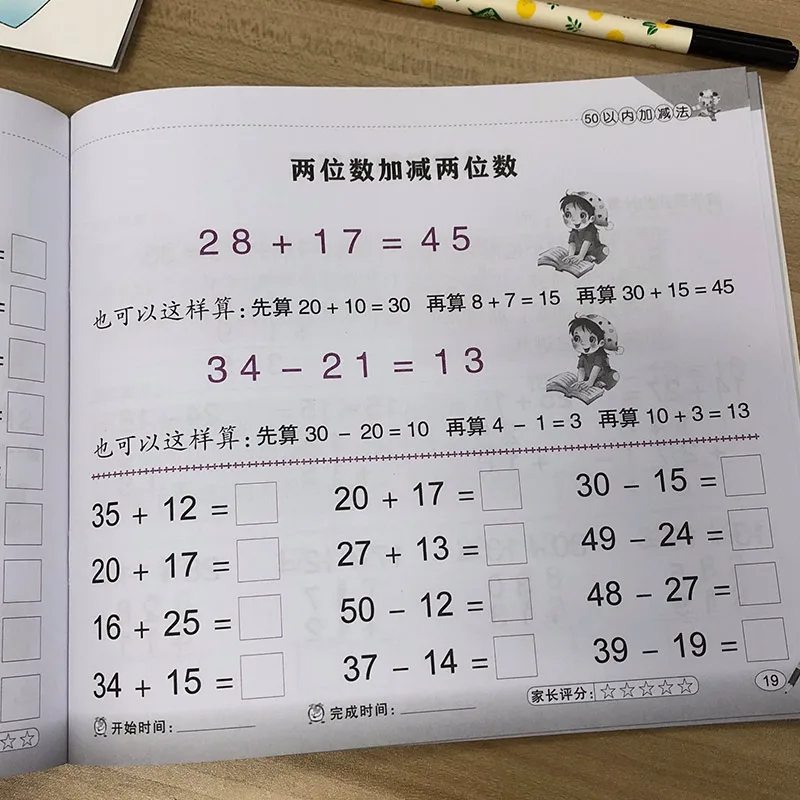 50以内加减法
两位数加减两位数
28 + 17 = 45
也可以这样算:先算 20 + 10 = 30 再算 8 + 7 = 15 再算 30 + 15 = 45
34 − 21 = 13
也可以这样算:先算 30 − 20 = 10 再算 4 − 1 = 3 再算 10 + 3 = 13
35 + 12 = 20 + 17 = 30 − 15 =
20 + 17 = 27 + 13 = 49 − 24 =
16 + 25 = 50 − 12 = 48 − 27 =
34 + 15 = 37 − 14 = 39 − 19 =
家长评分:☆☆☆☆☆ 19
开始时间: 完成时间: